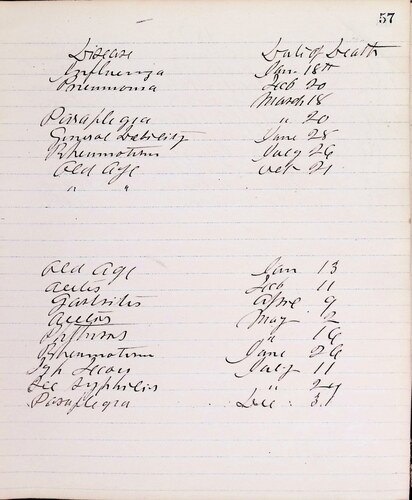 57
Disease Date of Death
Influenza Jan. 18th
Pneumonia Feb 20
March 18
Paraplegia " 20
General Debility June 28
Rheumatism July 26
Old Age Oct 21
" "
Old Age Jan 13
Feb 11
Gastritis April 9
May 12
Phthisis " 16
Rheumatism June 26
July 11
Sec Syphilis " 24
Paraplegia Dec. 31